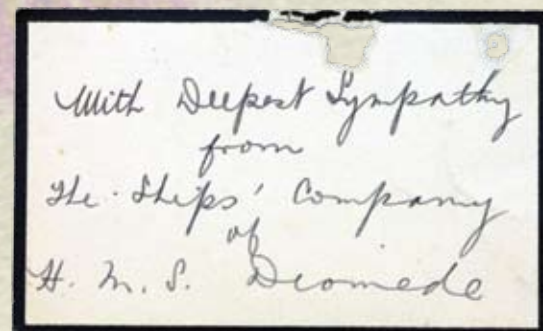 With Deepest Sympathy
from
The Ships' Company
of
H. M. S. Diomede